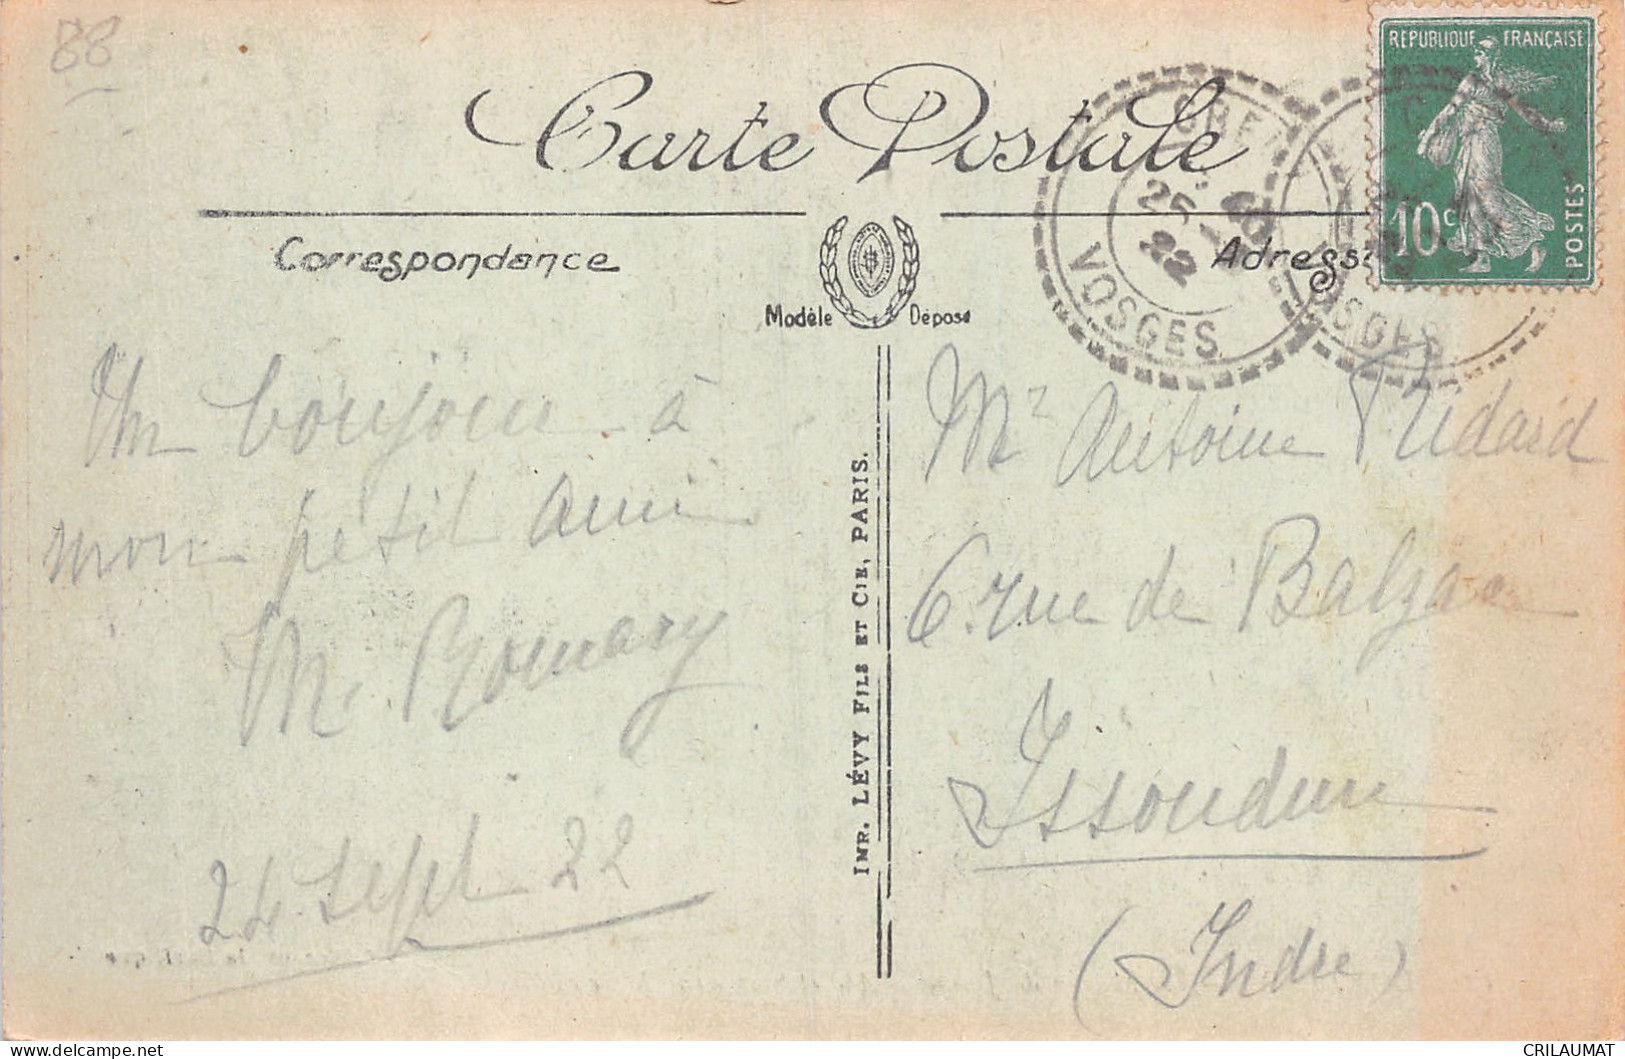 88
Carte Postale
RÉPUBLIQUE FRANÇAISE
10c
POSTES
VOSGES
25
22
Correspondance
Adresse
Modèle Déposé
Un bonjour à
mon petit ami
M. Romary
24 Sept 22
IMP. LÉVY FILS ET CIE, PARIS.
Mr Antoine
6 rue de Balzac
Issoudun
(Indre)
CRILAUMAT